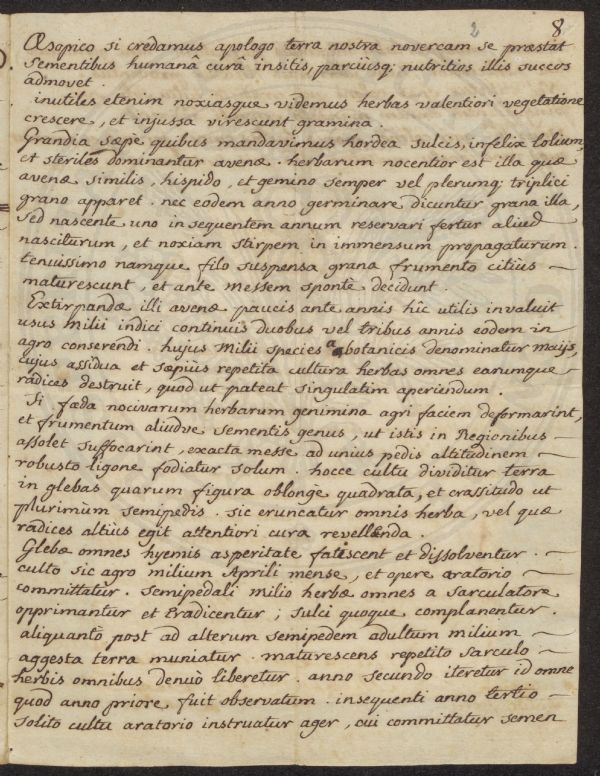 2 8
Æsopico si credamus apologo terra nostra novercam se præstat
sementibus humanâ curâ insitis, parciùsq; nutritios illis succos
admovet.
inutiles etenim noxiasque videmus herbas valentiori vegetatione
crescere, et injussa virescunt gramina.
Grandia sæpè quibus mandavimus hordea sulcis, infelix lolium,
et steriles dominantur avenæ. herbarum nocentior est illa quæ
avenæ similis, hispido, et gemino semper vel plerumq; triplici
grano apparet. nec eodem anno germinare dicuntur grana illa,
sed nascente uno in sequentem annum reservari fertur aliud
nasciturum, et noxiam stirpem in immensum propagaturum.
tenuissimo namque filo suspensa grana frumento citiùs —
maturescunt, et ante messem sponte decidunt.
Extirpandæ illi avenæ paucis ante annis hîc utilis invaluit
usus Milii indici continuis duobus vel tribus annis eodem in
agro conserendi. hujus Milii species a botanicis denominatur maijs,
cujus assidua et sæpiùs repetita cultura herbas omnes earumque
radices destruit, quod ut pateat singulatim aperiendum.
Si fæda nocivarum herbarum genimina agri faciem deformarint,
et frumentum aliudve sementis genus, ut istis in Regionibus —
assolet suffocarint, exacta messe ad unius pedis altitudinem —
robusto ligone fodiatur solum. hocce cultu dividitur terra
in glebas quarum figura oblongè quadrata, et crassitudo ut
plurimum semipedis. sic eruncatur omnis herba, vel quæ
radices altiùs egit attentiori cura revellenda.
Glebæ omnes hyemis asperitate fatiscent et dissolventur. —
culto sic agro milium Aprili mense, et opere aratorio —
committatur. semipedali milio herbæ omnes a sarculatore
opprimantur et Eradicentur; sulci quoque complanentur.
aliquantò post ad alterum semipedem adultum milium —
aggesta terra muniatur. maturescens repetito sarculo —
herbis omnibus denuò liberetur. anno secundo iteretur id omne
quod anno priore fuit observatum. insequenti anno tertio —
solito cultu aratorio instruatur ager, cui committatur semen